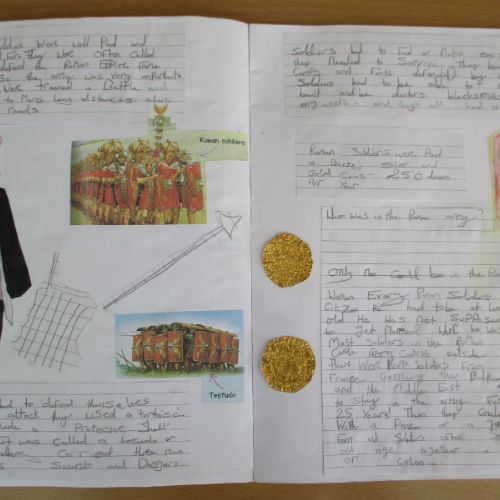 Soldiers Were Well Paid and
They Were Often Called
defend the Roman Empire From
the army was very importate
Were trained in Battle and
to March long distances along
roads.
Roman soldiers
Testudo
had to defend themselves
attack they used a tortoise
made a Protective Shell
It was called a tesudo or
Carried their own
Swords and Daggers.
Soldiers had to Find or Make
they Needed to Survive. They
Camps and Forts defended by
Soldiers had to be able to
built and be doctors blacksmiths
engineers - and they all had to
Roman Soldiers were Paid
in Bronze, Silver and
Gold Coins - 250 dinari
Per Year.
Who was in the Roman army?
Only Men Could be in the
Woman Every Roman Soldiers
Citizen He had to be at
old He was Not SuPPosed
to get Married While he
Most Soldiers in the Roman
Came From Camps outside
There Were Soldiers From
France Germany the
and the Middle East
to Stay in the army For
25 Years! Than they Could
With a Pension or a
old Soldier after
old age together
or Colonia.